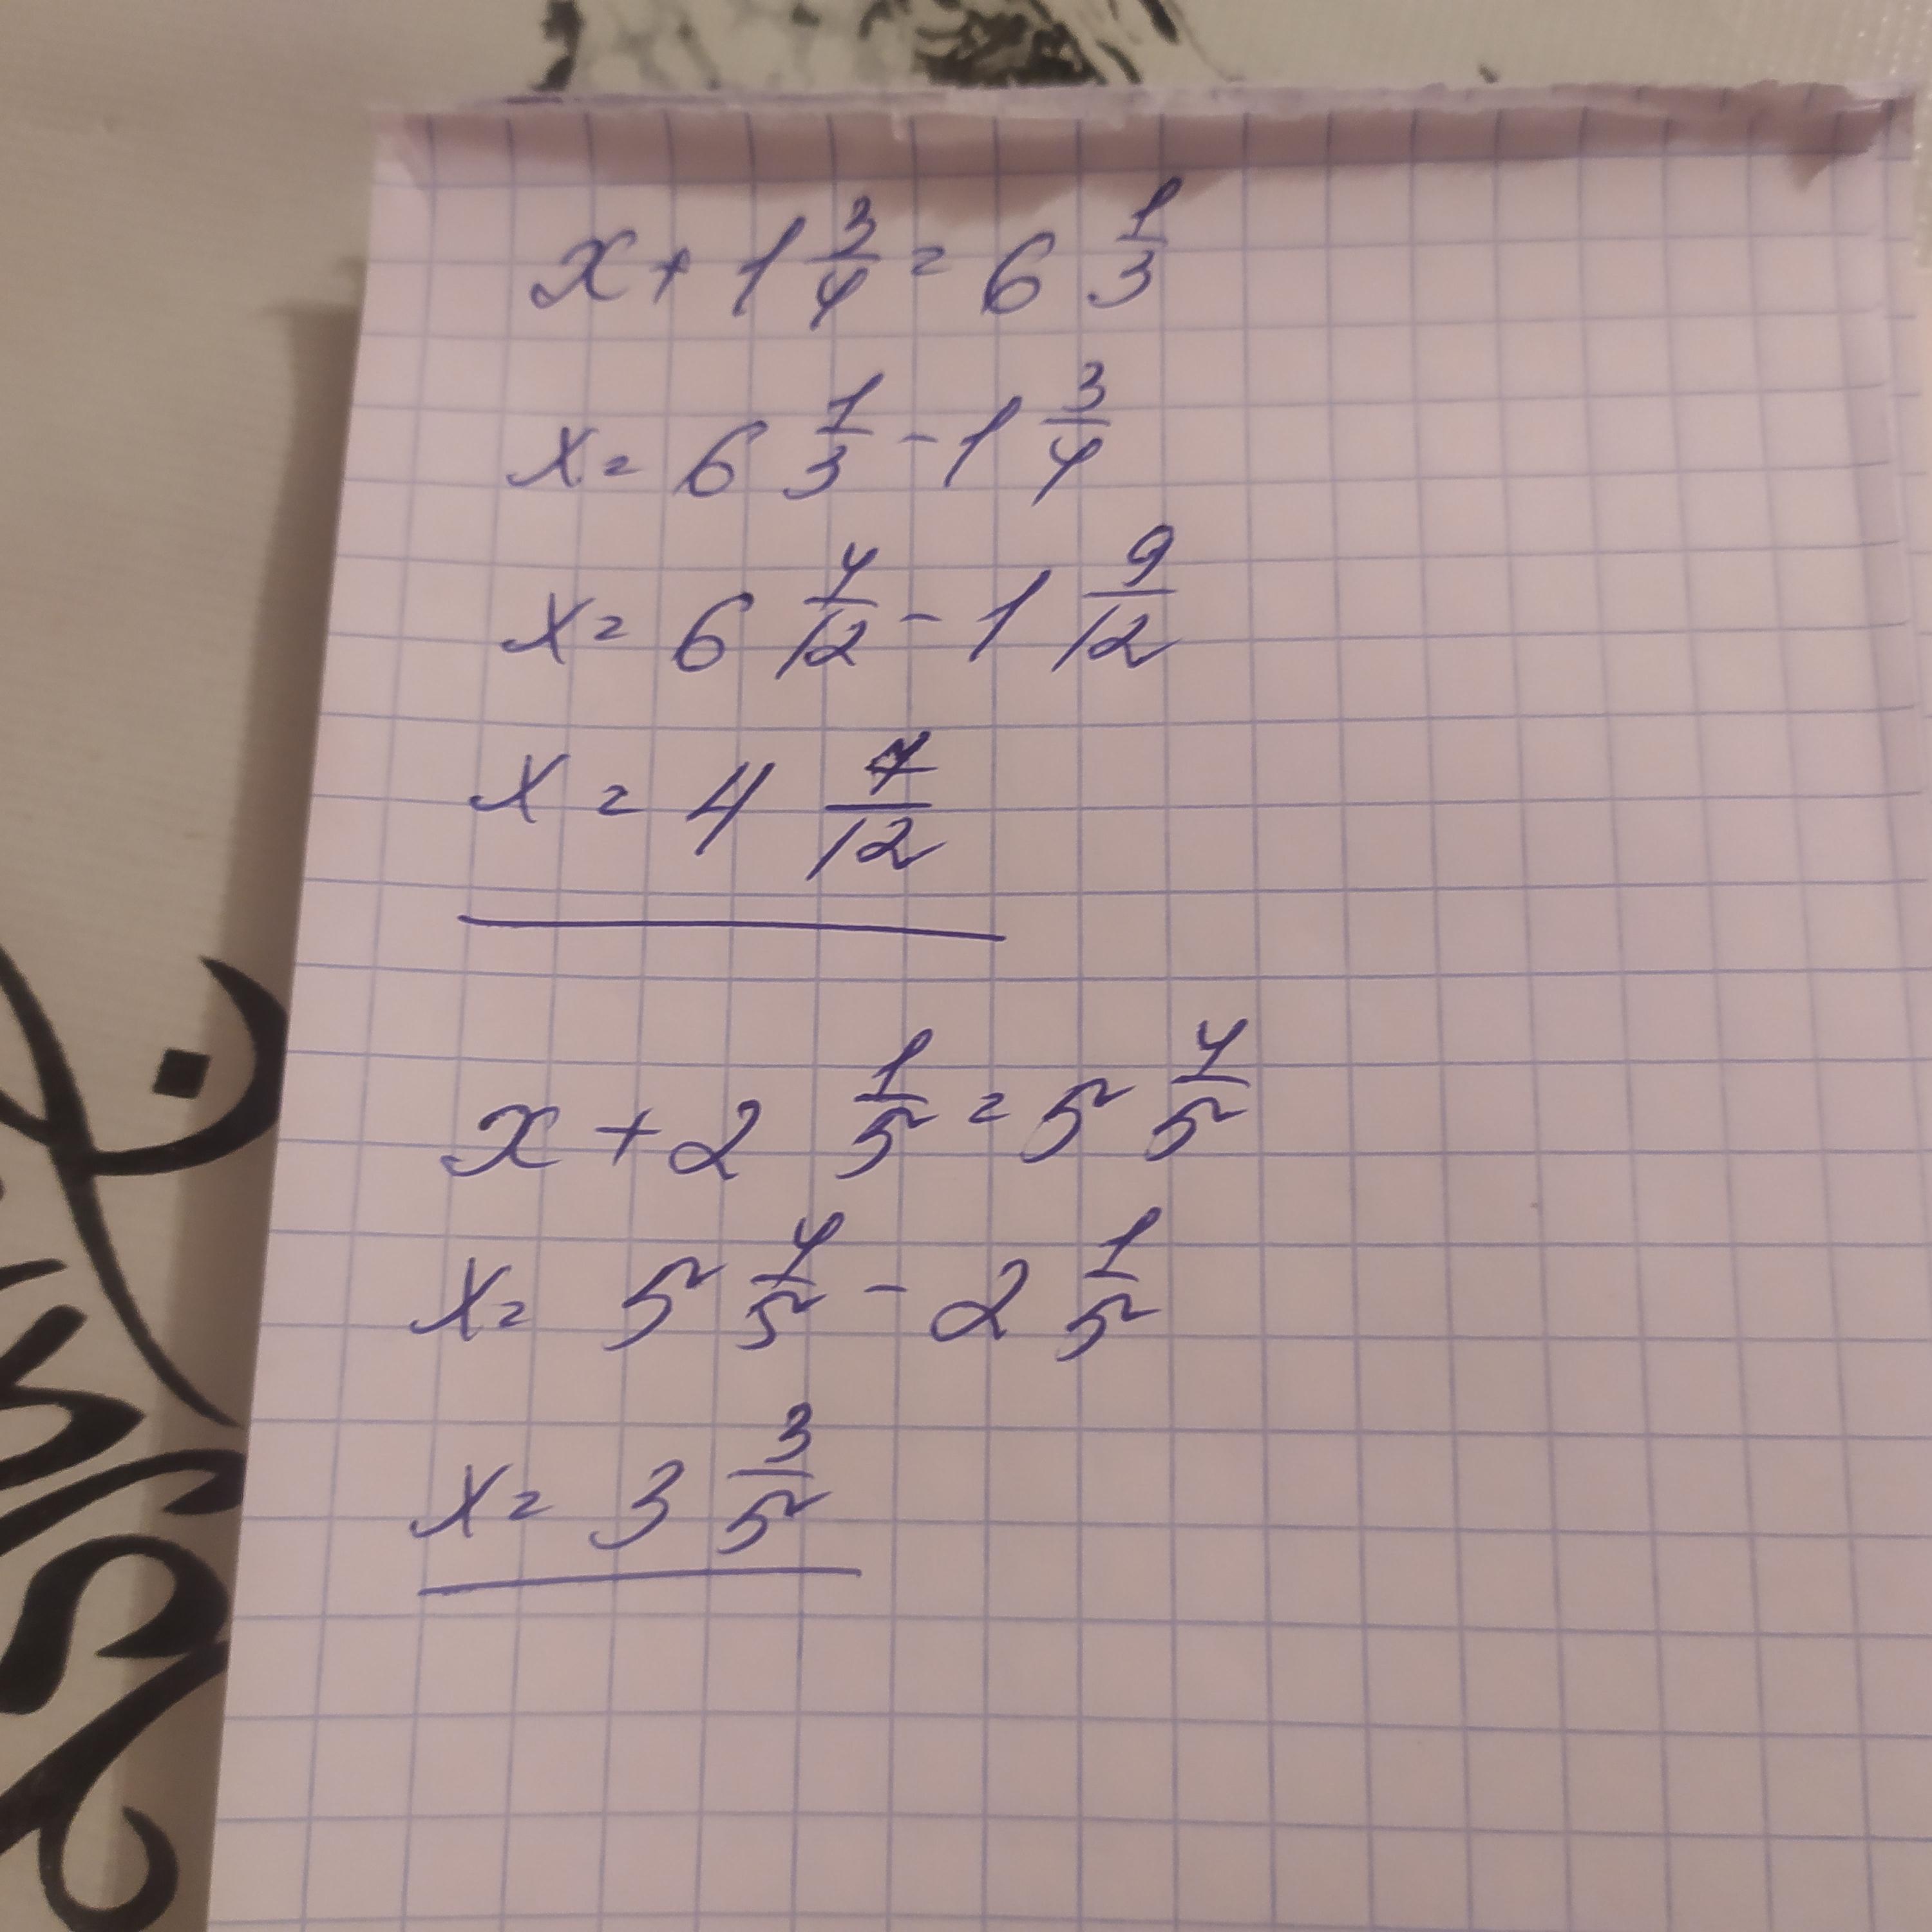 x + 1 3/4 = 6 1/3
x = 6 1/3 - 1 3/4
x = 6 4/12 - 1 9/12
x = 4 7/12
x + 2 1/5 = 5 4/5
x = 5 4/5 - 2 1/5
x = 3 3/5